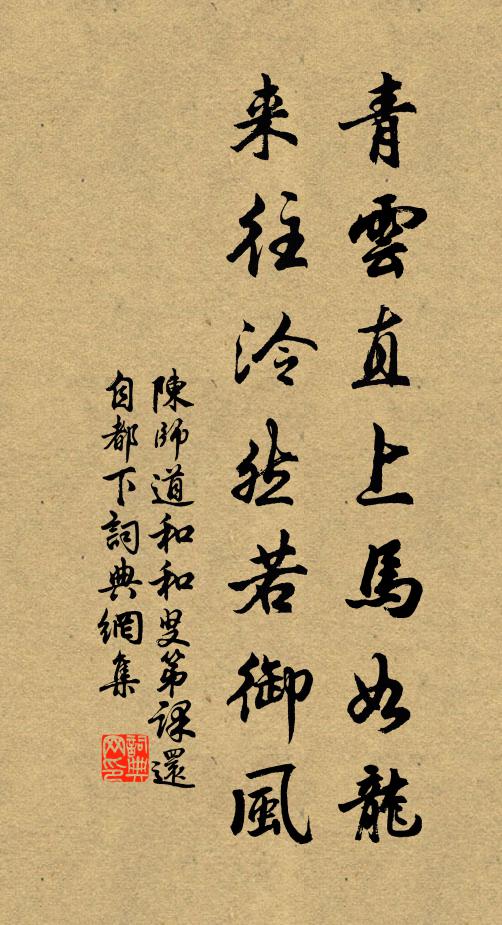 青雲直上馬如龍
来往泠然若御風
陳師道和和叟第課還
自都下詞典網集
詞典
网印